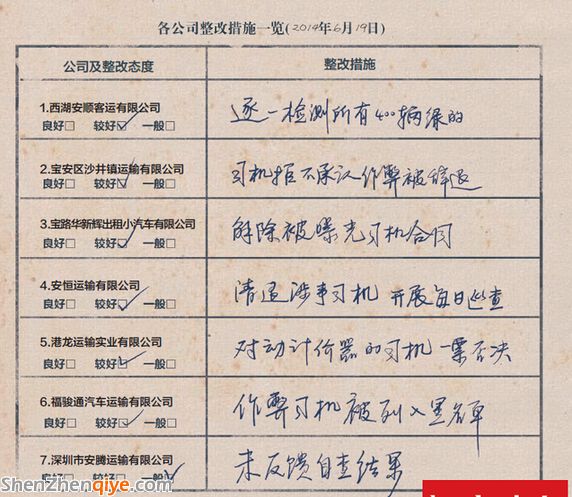 各公司整改措施一览(2014年6月19日)
公司及整改态度 整改措施
1.西湖安顺客运有限公司
良好□ 较好☑ 一般□
逐一检测所有400辆绿的
2.宝安区沙井镇运输有限公司
良好□ 较好☑ 一般□
司机拒不承认作弊被辞退
3.宝路华新辉出租小汽车有限公司
良好□ 较好☑ 一般□
解除被曝光司机合同
4.安恒运输有限公司
良好□ 较好☑ 一般□
清退涉事司机 开展每日巡查
5.港龙运输实业有限公司
良好□ 较好☑ 一般□
对动计价器的司机一票否决
6.福骏通汽车运输有限公司
良好□ 较好☑ 一般□
作弊司机被列入黑名单
7.深圳市安腾运输有限公司
良好□ 较好□ 一般☑
未反馈自查结果
Shenzhenqiye.com